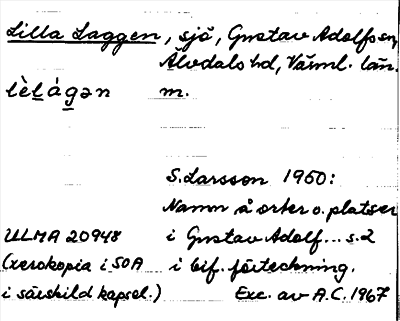 Lilla Laggen, sjö, Gustav Adolfs sn,
Älvdals hd, Värml. län.
lèlágən m.
S. Larsson 1950:
Namn å orter o. platser
ULMA 20948 i Gustav Adolf... s.2
(xerokopia i SOA i bif. förteckning.
i särskild kapsel.) Exc. av A.C. 1967